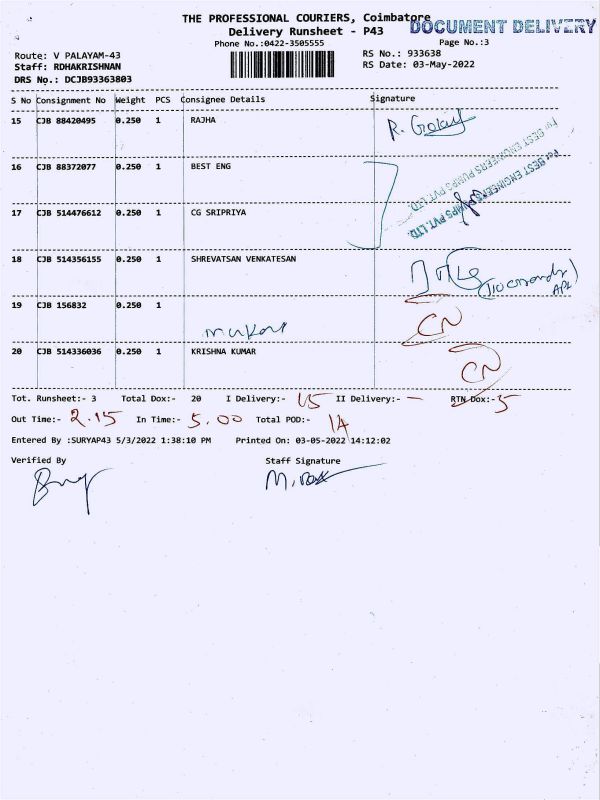 THE PROFESSIONAL COURIERS, Coimbatore
DOCUMENT DELIVERY
Delivery Runsheet - P43
Phone No.:0422-3505555
Page No.:3
Route: V PALAYAM-43
RS No.: 933638
Staff: RDHAKRISHNAN
RS Date: 03-May-2022
DRS No.: DCJB93363803
S No Consignment No Weight PCS Consignee Details Signature
15 CJB 88420495 0.250 1 RAJHA
16 CJB 88372077 0.250 1 BEST ENG
For BEST ENGINEERS PUMPS PVT. LTD.
For BEST ENGINEERS PUMPS PVT. LTD.
17 CJB 514476612 0.250 1 CG SRIPRIYA
18 CJB 514356155 0.250 1 SHREVATSAN VENKATESAN
19 CJB 156832 0.250 1
CN
20 CJB 514336036 0.250 1 KRISHNA KUMAR
CN
Tot. Runsheet:- 3 Total Dox:- 20 I Delivery:- 15 II Delivery:- — RTN Dox:- 5
Out Time:- 2.15 In Time:- 5.00 Total POD:- 14
Entered By :SURYAP43 5/3/2022 1:38:10 PM Printed On: 03-05-2022 14:12:02
Verified By Staff Signature